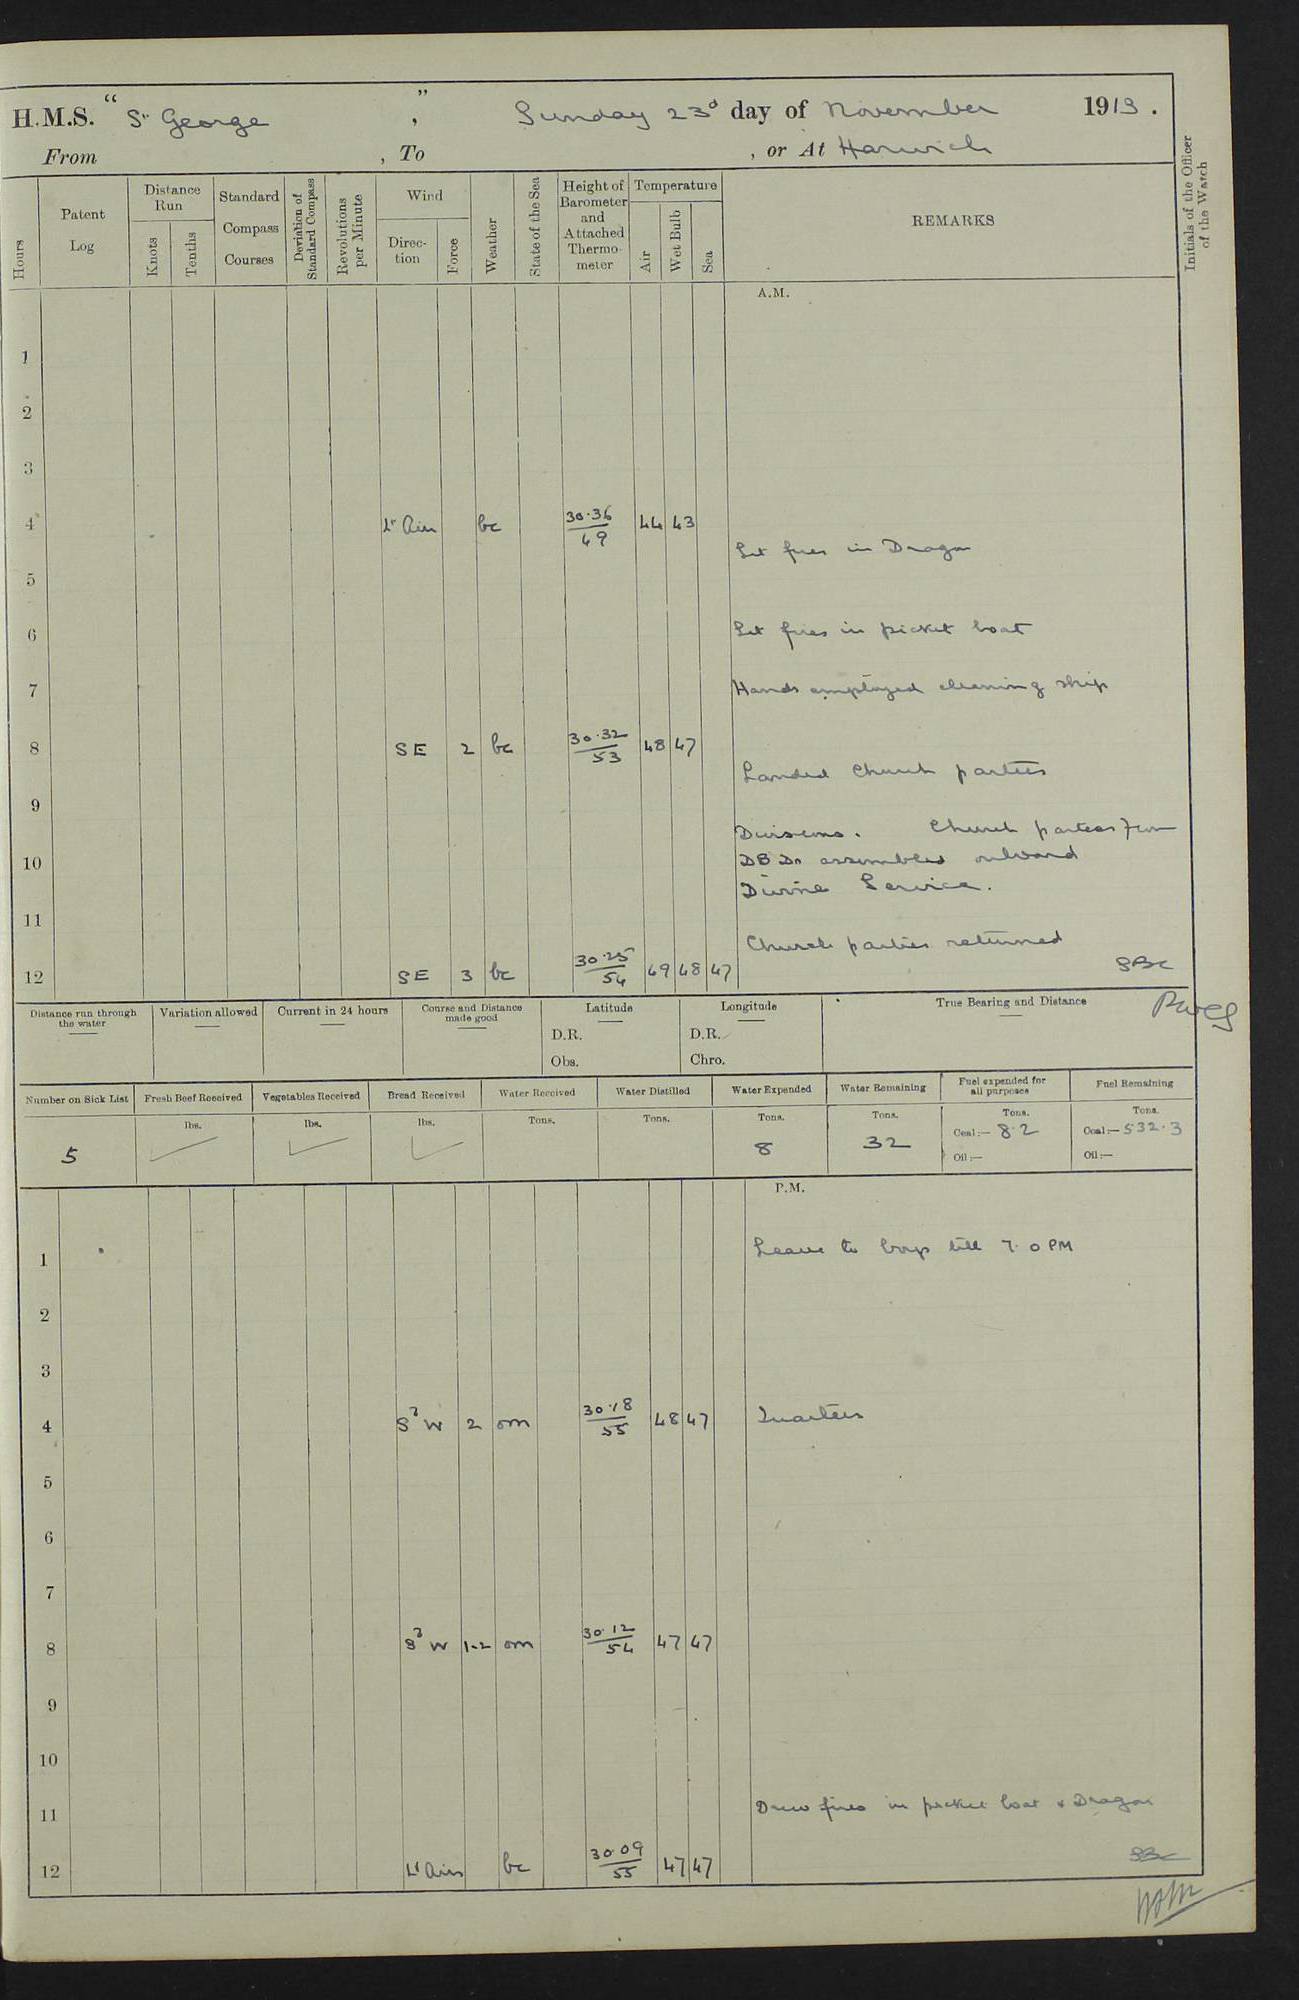 H.M.S. "Sᵗ George", Sunday 23ᵈ day of November 1913.
From , To , or At Harwich
Hours
Patent Log
Distance Run
Knots
Tenths
Standard Compass Courses
Deviation of Standard Compass
Revolutions per Minute
Wind
Direction
Force
Weather
State of the Sea
Height of Barometer and Attached Thermometer
Temperature
Air
Wet Bulb
Sea
REMARKS
Initials of the Officer of the Watch
A.M.
1
2
3
4 Lᵗ Airs bc 30.36/49 44 43
Lit fires in Dragon
5
6 Lit fires in picket boat
7 Hands employed cleaning ship
8 SE 2 bc 30.32/53 48 47
Landed Church parties
9
Divisions. Church parties from
10 DBDs assembled onboard
Divine Service.
11
Church parties returned
12 SE 3 bc 30.25/54 49 48 47
Distance run through the water
Variation allowed
Current in 24 hours
Course and Distance made good
Latitude
D.R.
Obs.
Longitude
D.R.
Chro.
True Bearing and Distance
Number on Sick List
Fresh Beef Received
Vegetables Received
Bread Received
Water Received
Water Distilled
Water Expended
Water Remaining
Fuel expended for all purposes
Fuel Remaining
5
lbs.
lbs.
lbs.
Tons.
Tons.
Tons. 8
Tons. 32
Tons. Coal:— 8.2 Oil:—
Tons. Coal:— 532.3 Oil:—
P.M.
1 Leave to boys till 7.0 PM
2
3
4 S'W 2 om 30.18/55 48 47 Quarters
5
6
7
8 S'W 1-2 om 30.12/54 47 47
9
10
11 Drew fires in picket boat & Dragon
12 Lᵗ Airs bc 30.09/55 47 47